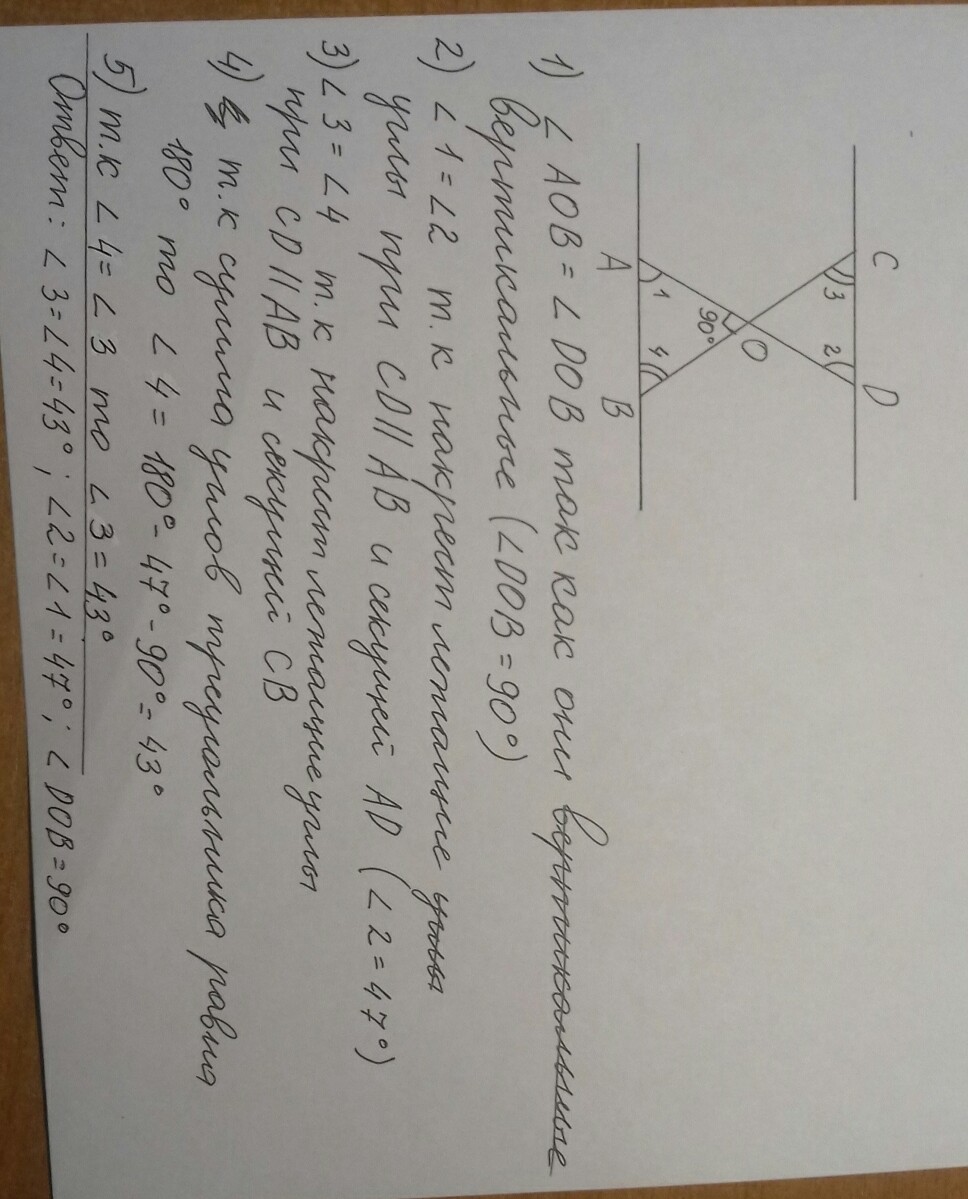 C D
3 2
O
90°
1 4
A B
1) ∠ AOB = ∠ DOB так как они вертикальные
вертикальные (∠DOB = 90°)
2) ∠ 1 = ∠2 т.к накрест лежащие углы
углы при CD || AB и секущей AD (∠ 2 = 47°)
3) ∠ 3 = ∠ 4 т.к накрит лежащие углы
при CD || AB и секущей CB
4) т.к сумма углов треугольника равна
180° то ∠ 4 = 180° - 47° - 90° = 43°
5) т.к ∠ 4 = ∠ 3 то ∠ 3 = 43°
Ответ: ∠ 3 = ∠4 = 43° ; ∠2 = ∠1 = 47° ; ∠ DOB = 90°